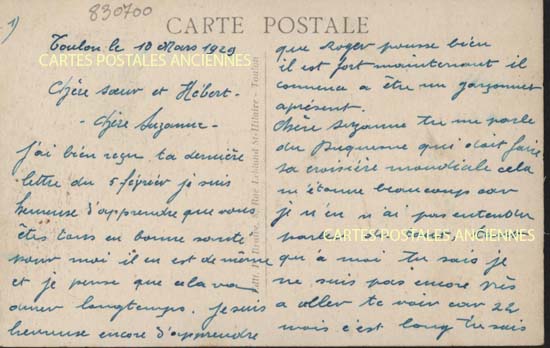 1)
830700
CARTE POSTALE
Toulon le 10 Mars 1929
CARTES POSTALES ANCIENNES
Chère sœur et Hébert -
- Chère Suzanne -
J'ai bien reçu ta dernière
lettre du 5 février je suis
heureuse d'apprendre que vous
êtes tous en bonne santé
pour moi il en est de même
et je pense que cela va
durer longtemps. Je suis
heureuse encore d'apprendre
Rue St-Hilaire - Toulon
que Roger pousse bien
il est fort maintenant il
commence a être un garçonnet
aprésent.
Chère Suzanne tu me parle
du Duquesne qui doit faire
sa croisière mondiale cela
m'étonne beaucoup car
je n'en n'ai pas entendu
parler
CARTES POSTALES ANCIENNES
qu'a moi tu sais je
ne suis pas encore près
a aller te voir car 22
mois c'est long tu sais